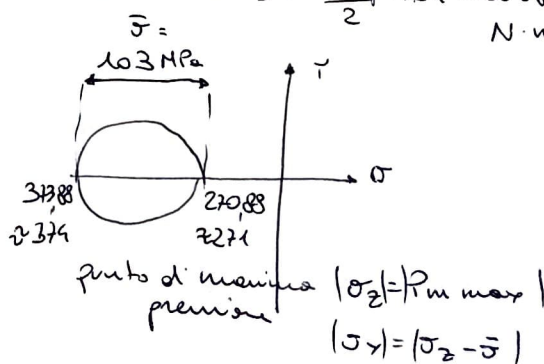 2
N·m
σ̄ =
103 MPa
τ
σ
373,88
≈ 374
270,88
≈ 271
punto di massima pressione
|σz| = |Pm max|
|σy| = |σz - σ̄|